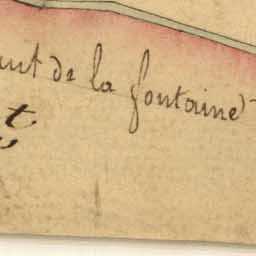 de la fontaine
t